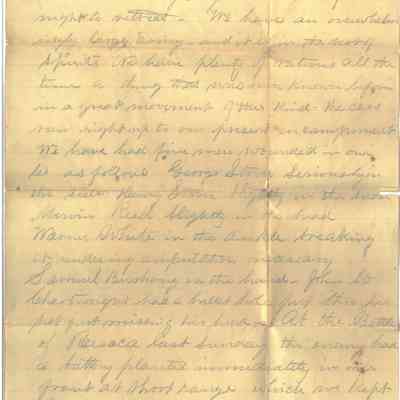 night to retreat. We have an overwhelm
ingly large army and it is in the best of
spirits. We have plenty of rations all the
time a thing that was never known before
in a great movement of this kind. The cars
run right up to our present encampment
We have had five men wounded in our
Co as follows George Stone Seriously in
the side Slightly in the
Reed Slightly in the head
Warner White in the ankle breaking
it rendering amputation necessary
Samuel in the hand. John W
has a ball just
just missing his head At the Battle
of Resaca last Sunday the enemy had
a battery planted immediately in our
front at short range which we kept